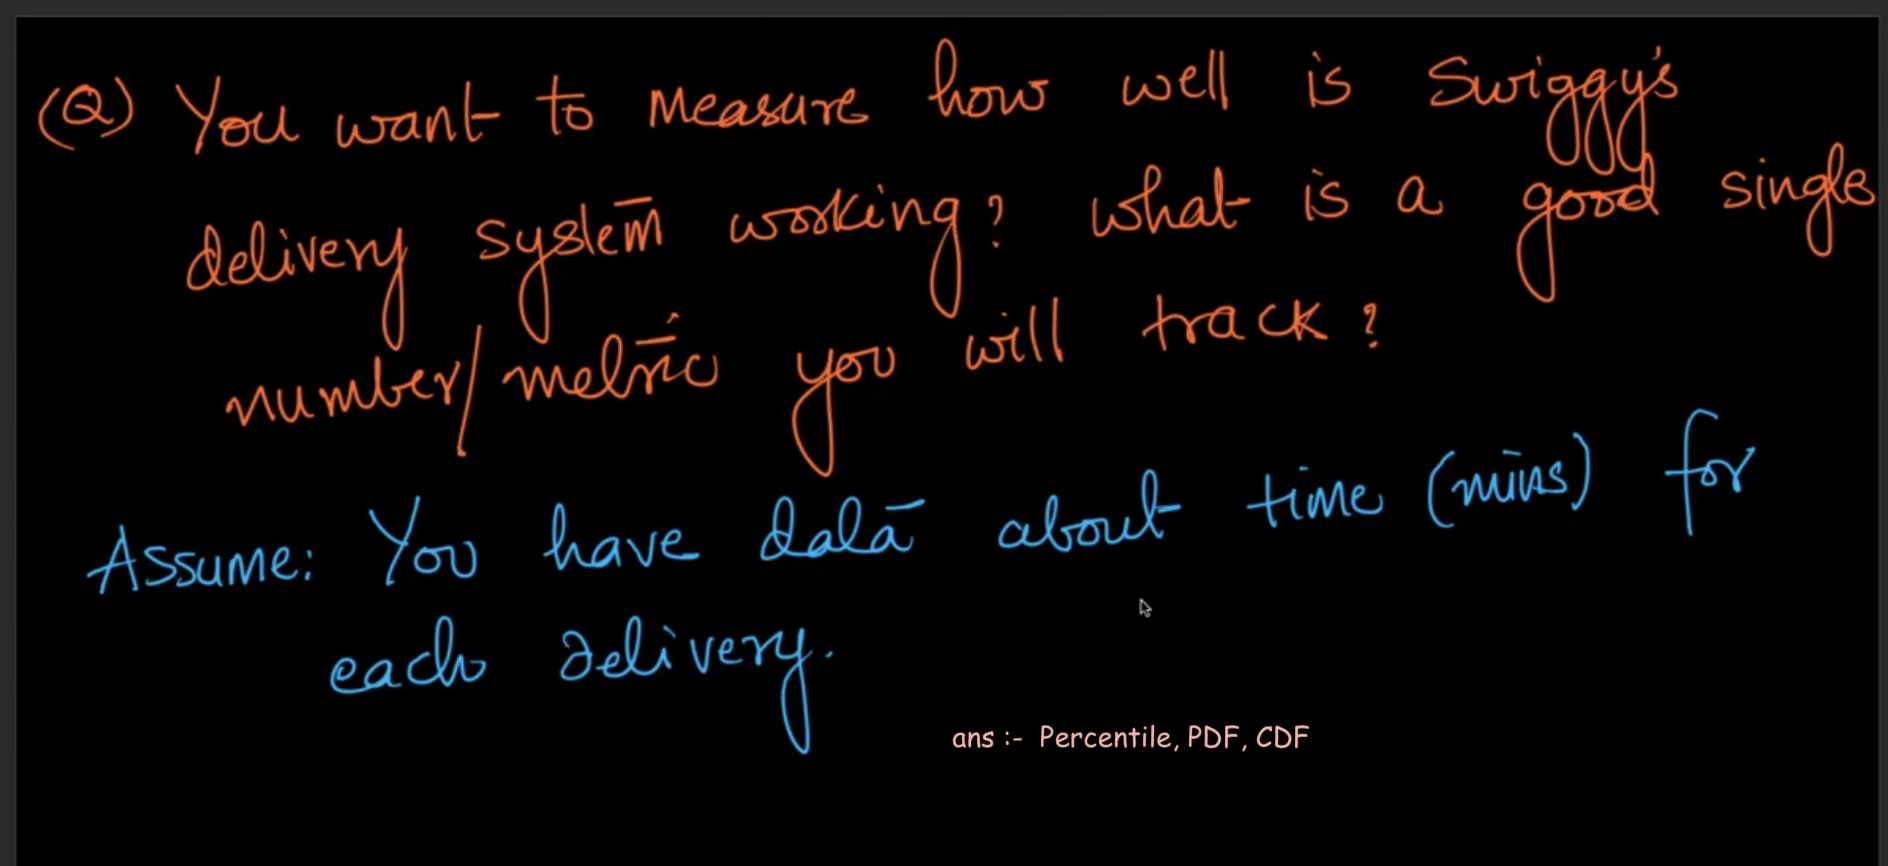 (Q) You want to measure how well is Swiggy's
delivery system working? what is a good single
number/metric you will track?
Assume: You have data about time (mins) for
each delivery.
ans :- Percentile, PDF, CDF